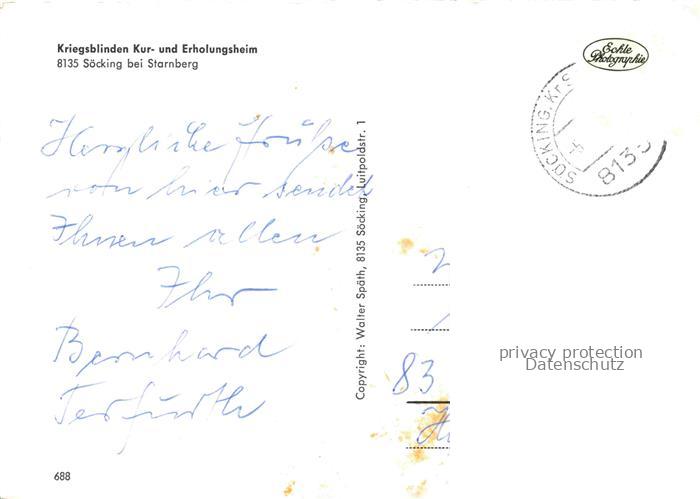 Kriegsblinden Kur- und Erholungsheim
8135 Söcking bei Starnberg
Echte
Photographie
SÖCKING, Kr S
8135
Herzliche Grüße
von hier sendet
Ihnen allen
Ihr
Bernhard
Copyright: Walter Späth, 8135 Söcking, Luitpoldstr. 1
83
privacy protection
Datenschutz
688